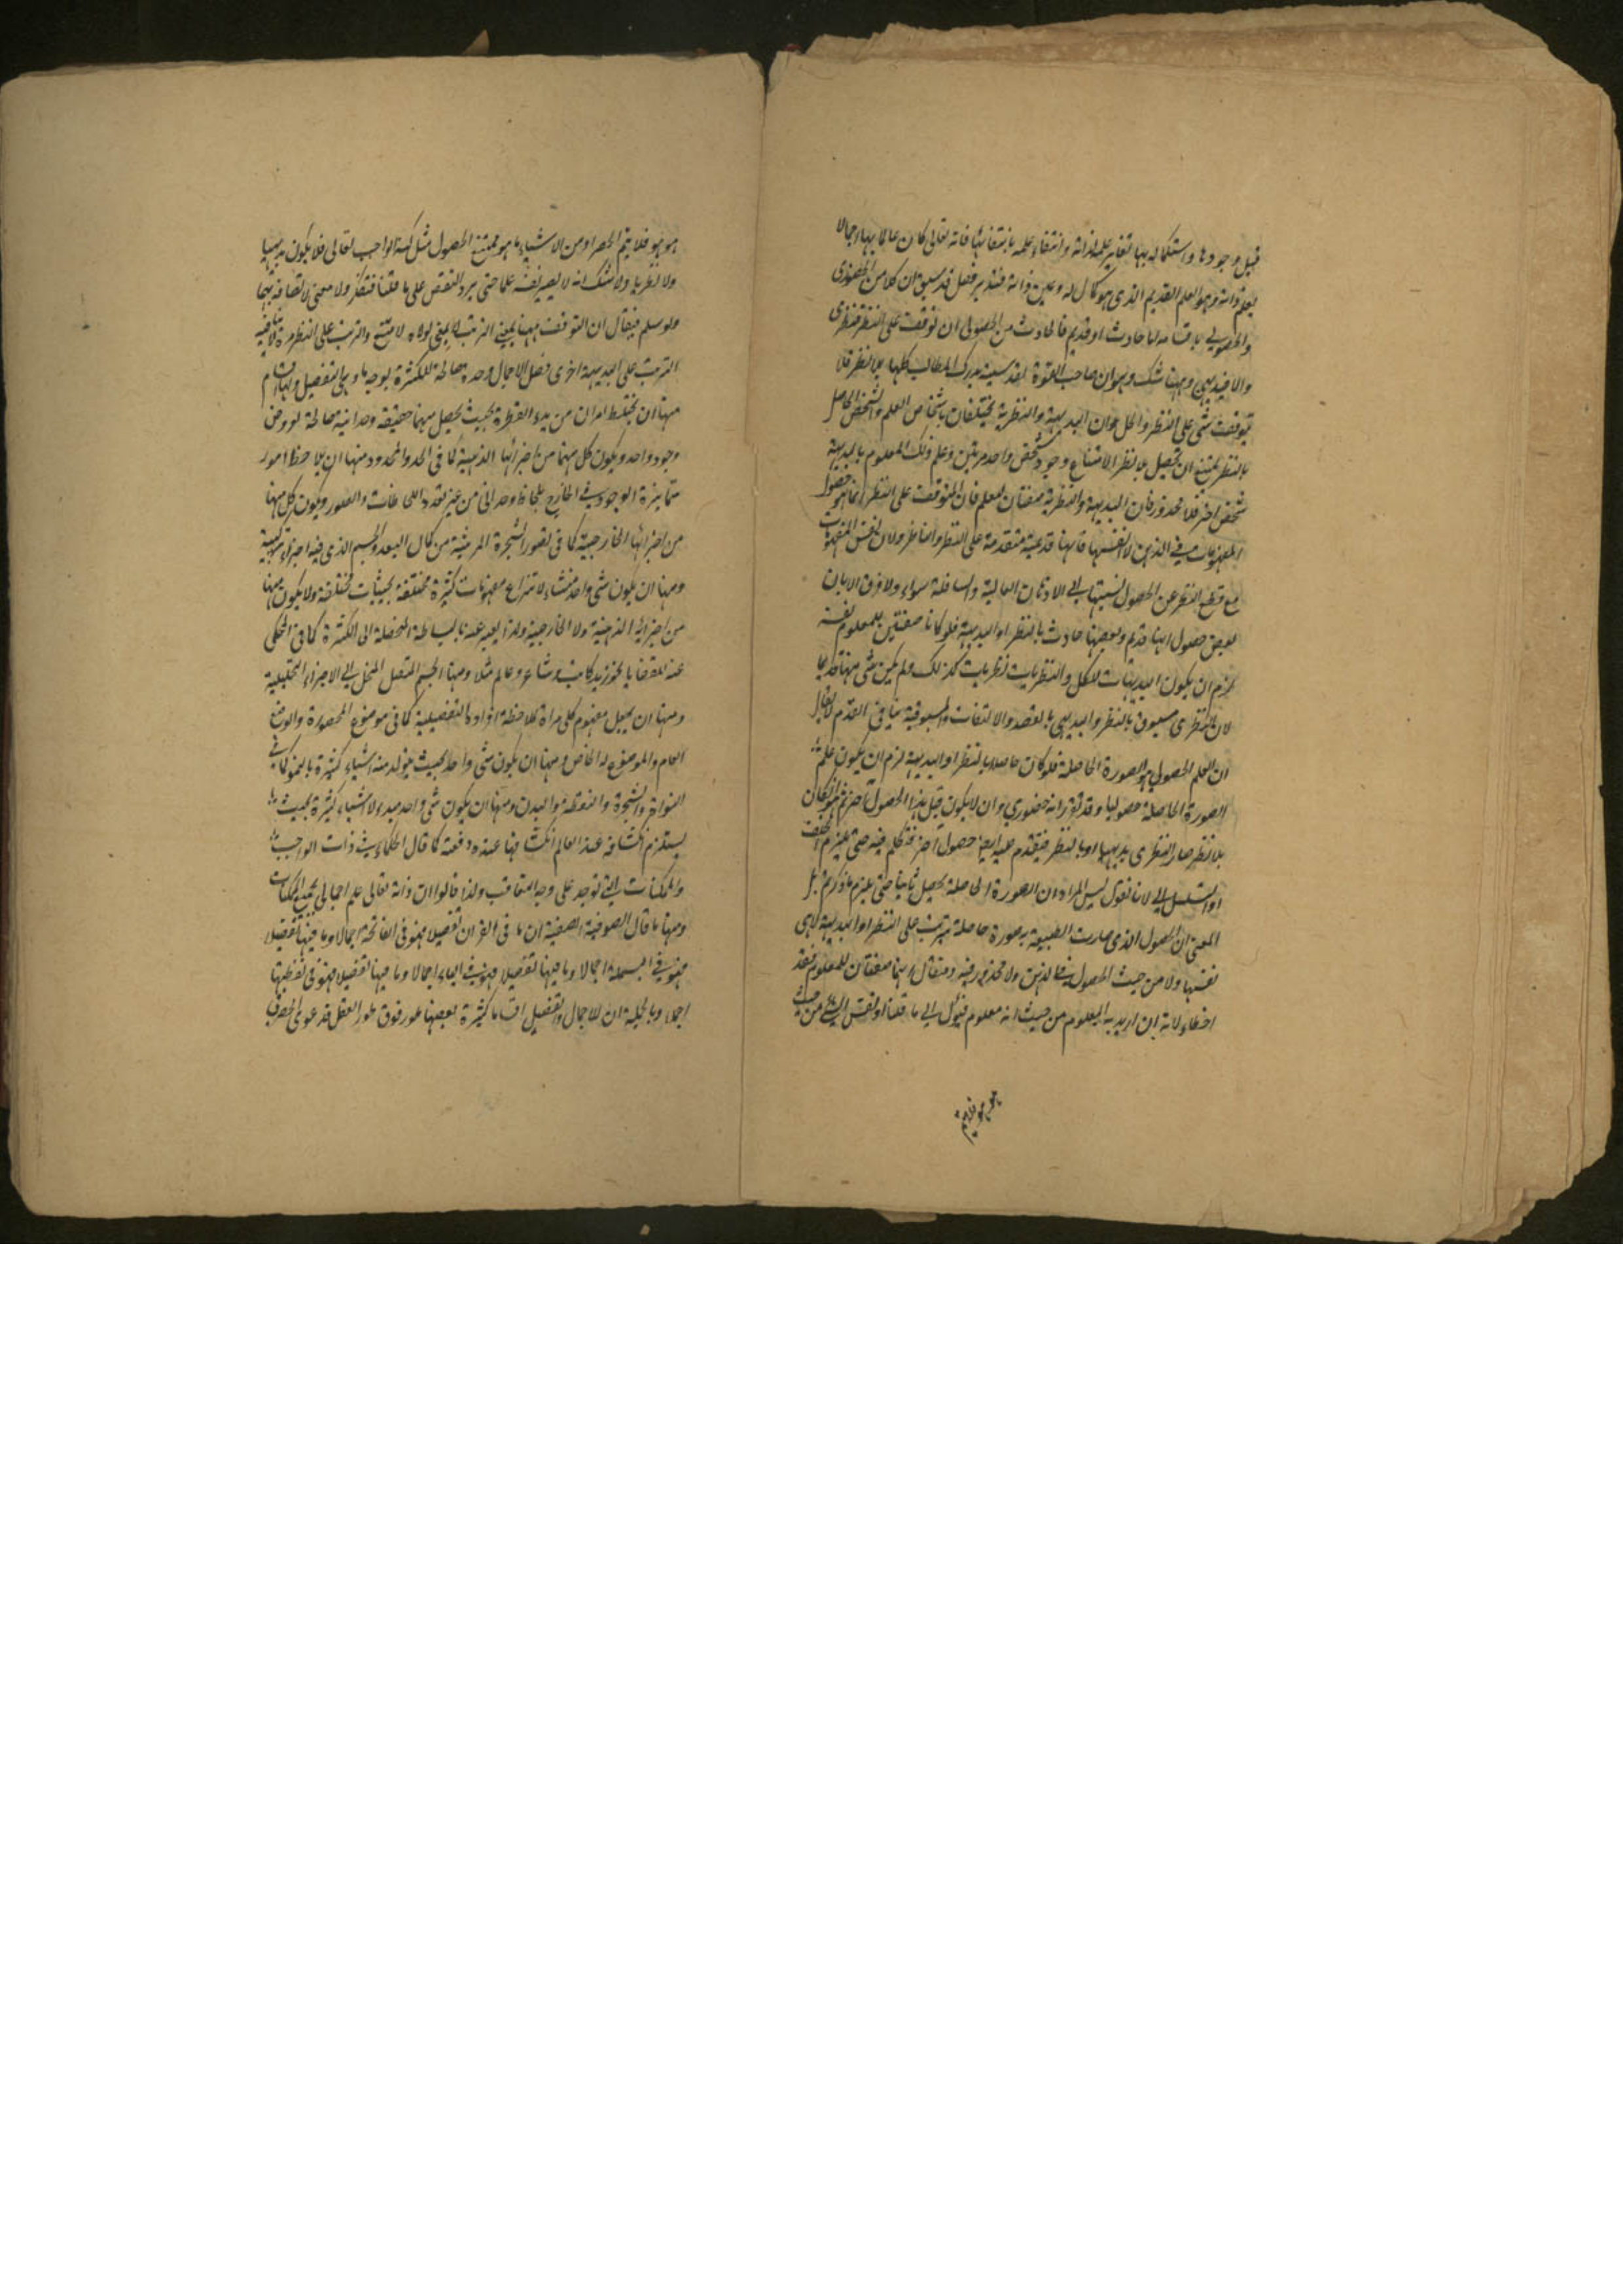 قبل وجودها واستكماله بها تغاير علمه لذاته وانتفاء علمه بانتفائها فانه تعالى كان عالما بها اجمالا
بعلم ذاته وهو العلم القديم الذي هو كمال له وعين ذاته فتدبر فصل قد سبق ان كلا من الحضوري
والحصولي باقسامه اما حادث او قديم فالحادث من الحصولي ان توقف على النظر فنظري
والا فبديهي وههنا شك وهو ان صاحب القوة القدسية يدرك المطالب كلها بلا نظر فلا
يتوقف شئ على النظر والحل ان البديهية والنظرية يختلفان باشخاص العلم والشخص الحاصل
بالنظر يمتنع ان يحصل بلا نظر لامتناع وجود شخص واحد مرتين وعلم ذلك المعلوم بالبديهة
شخص اخر فلا محذور فان البديهية والنظرية صفتان للعلم فان المتوقف على النظر انما هو حصول
المفهومات في الذهن لا انفسها فانها قديمة متقدمة على النظر والناظر ولان نفس المفهومات
مع قطع النظر عن الحصول نسبتها الى الاذهان العالية والسافلة سواء ولا فرق الا بان
بعض حصول اتها قديم وبعضها حادث بالنظر او البديهة فلو كانا صفتين للمعلوم نفسه
لزم ان يكون البديهيات للكل والنظريات نظريات كذلك ولم يكن شئ منها قديما
لان النظري مسبوق بالنظر والبديهي بالقصد والالتفات والمسبوقية ينافي القدم لا يقال
ان العلم الحصولي هو الصورة الحاصلة فلو كان حاصلا بالنظر او البديهة لزم ان يكون علم
الصورة الحاصلة حصوليا وقد تقرر انه حضوري وان لا يكون قبل هذا الحصول آخر ثم هو ان كان
بلا نظر صار النظري بديهيا او بالنظر فيتقدم عليه ايضا حصول آخر فتكلم فيه حتى يلزم الخلف
او التسلسل الى لانا نقول ليس المراد ان الصورة الحاصلة يحصل ثانيا حتى يلزم ما ذكرتم بل
المعنى ان الحصول الذي صارت الطبيعة به صورة حاصلة يترتب على النظر او البديهة لا هي
نفسها ولا من حيث الحصول في الذهن ولا محذور فيه ومن قال انهما صفتان للمعلوم فقد
اخطاء لانه ان اريد به المعلوم من حيث انه معلوم فيؤل الى ما قلنا او نفس الشئ من حيث
هو هو فلا يتم
هو هو فلا يتم الحصر اذ من الاشياء ما هو ممتنع الحصول مثل كنه الواجب تعالى فلا يكون بديهيا
ولا نظريا ولا شك انه لا يصير نفسه علما حتى يرد النقض على ما قلنا فتفكر ولا معنى لاتصافه بهما
ولو سلم فيقال ان التوقف ههنا بمعنى الترتب لا بمعنى لولاه لامتنع والترتب على النظر مرة لا ينافيه
الترتب على البديهة اخرى فصل الاجمال وحدة صالحة للكثرة بوجه ما وهي التفصيل ولها اقسام
منها ان يختلط امران من بدء الفطرة بحيث يحصل منهما حقيقة وحدانية صالحة لعروض
وجود واحد ويكون كل منهما من اجزائها الذهنية كما في الحد والمحدود ومنها ان يلاحظ امور
متمايزة الوجود في الخارج بلحاظ وحداني من غير تعدد اللحاظات والصور ويكون كل منها
من اجزائها الخارجية كما في تصور الشجرة المرئية من كمال البعد والجسم الذي فيه اجزاء تركيبية
ومنها ان يكون شئ واحد منشاء لانتزاع مفهومات كثيرة مختلفة بحيثيات مختلفة ولا يكون منها
من اجزائه الذهنية ولا الخارجية ولذا يعبر عنه بالبساطة المحضة الى الكثرة كما في المحكي
عنه للقضايا نحو زيد كاتب وشاعر وعالم مثلا ومنها الجسم المتصل المنحل الى الاجزاء التحليلية
ومنها ان يجعل مفهوم كلي مراة لملاحظة افراده التفصيلية كما في موضوع المحصورة والوضع
العام والموضوع له الخاص ومنها ان يكون شئ واحد بحيث يتولد منه اشياء كثيرة بالنمو كما في
النواة والشجرة والنطفة والبدن ومنها ان يكون شئ واحد مبدء لاشياء كثيرة بحيث
يستلزم انكشافه عند العالم انكشافها عنده دفعة كما قال الحكماء في ذات الواجب
والممكنات التي توجد على وجه التعاقب ولذا قالوا ان ذاته تعالى علم اجمالي بجميع الممكنات
ومنها ما قال الصوفية الصفية ان ما في القران تفصيلا فهو في الفاتحة اجمالا وما فيها تفصيلا
فهو في البسملة اجمالا وما فيها تفصيلا فهو في الباء اجمالا وما فيها تفصيلا فهو في نقطتها
اجمالا وبالجملة ان للاجمال والتفصيل اقساما كثيرة بعضها طور فوق طور العقل فدعوى الحصر في